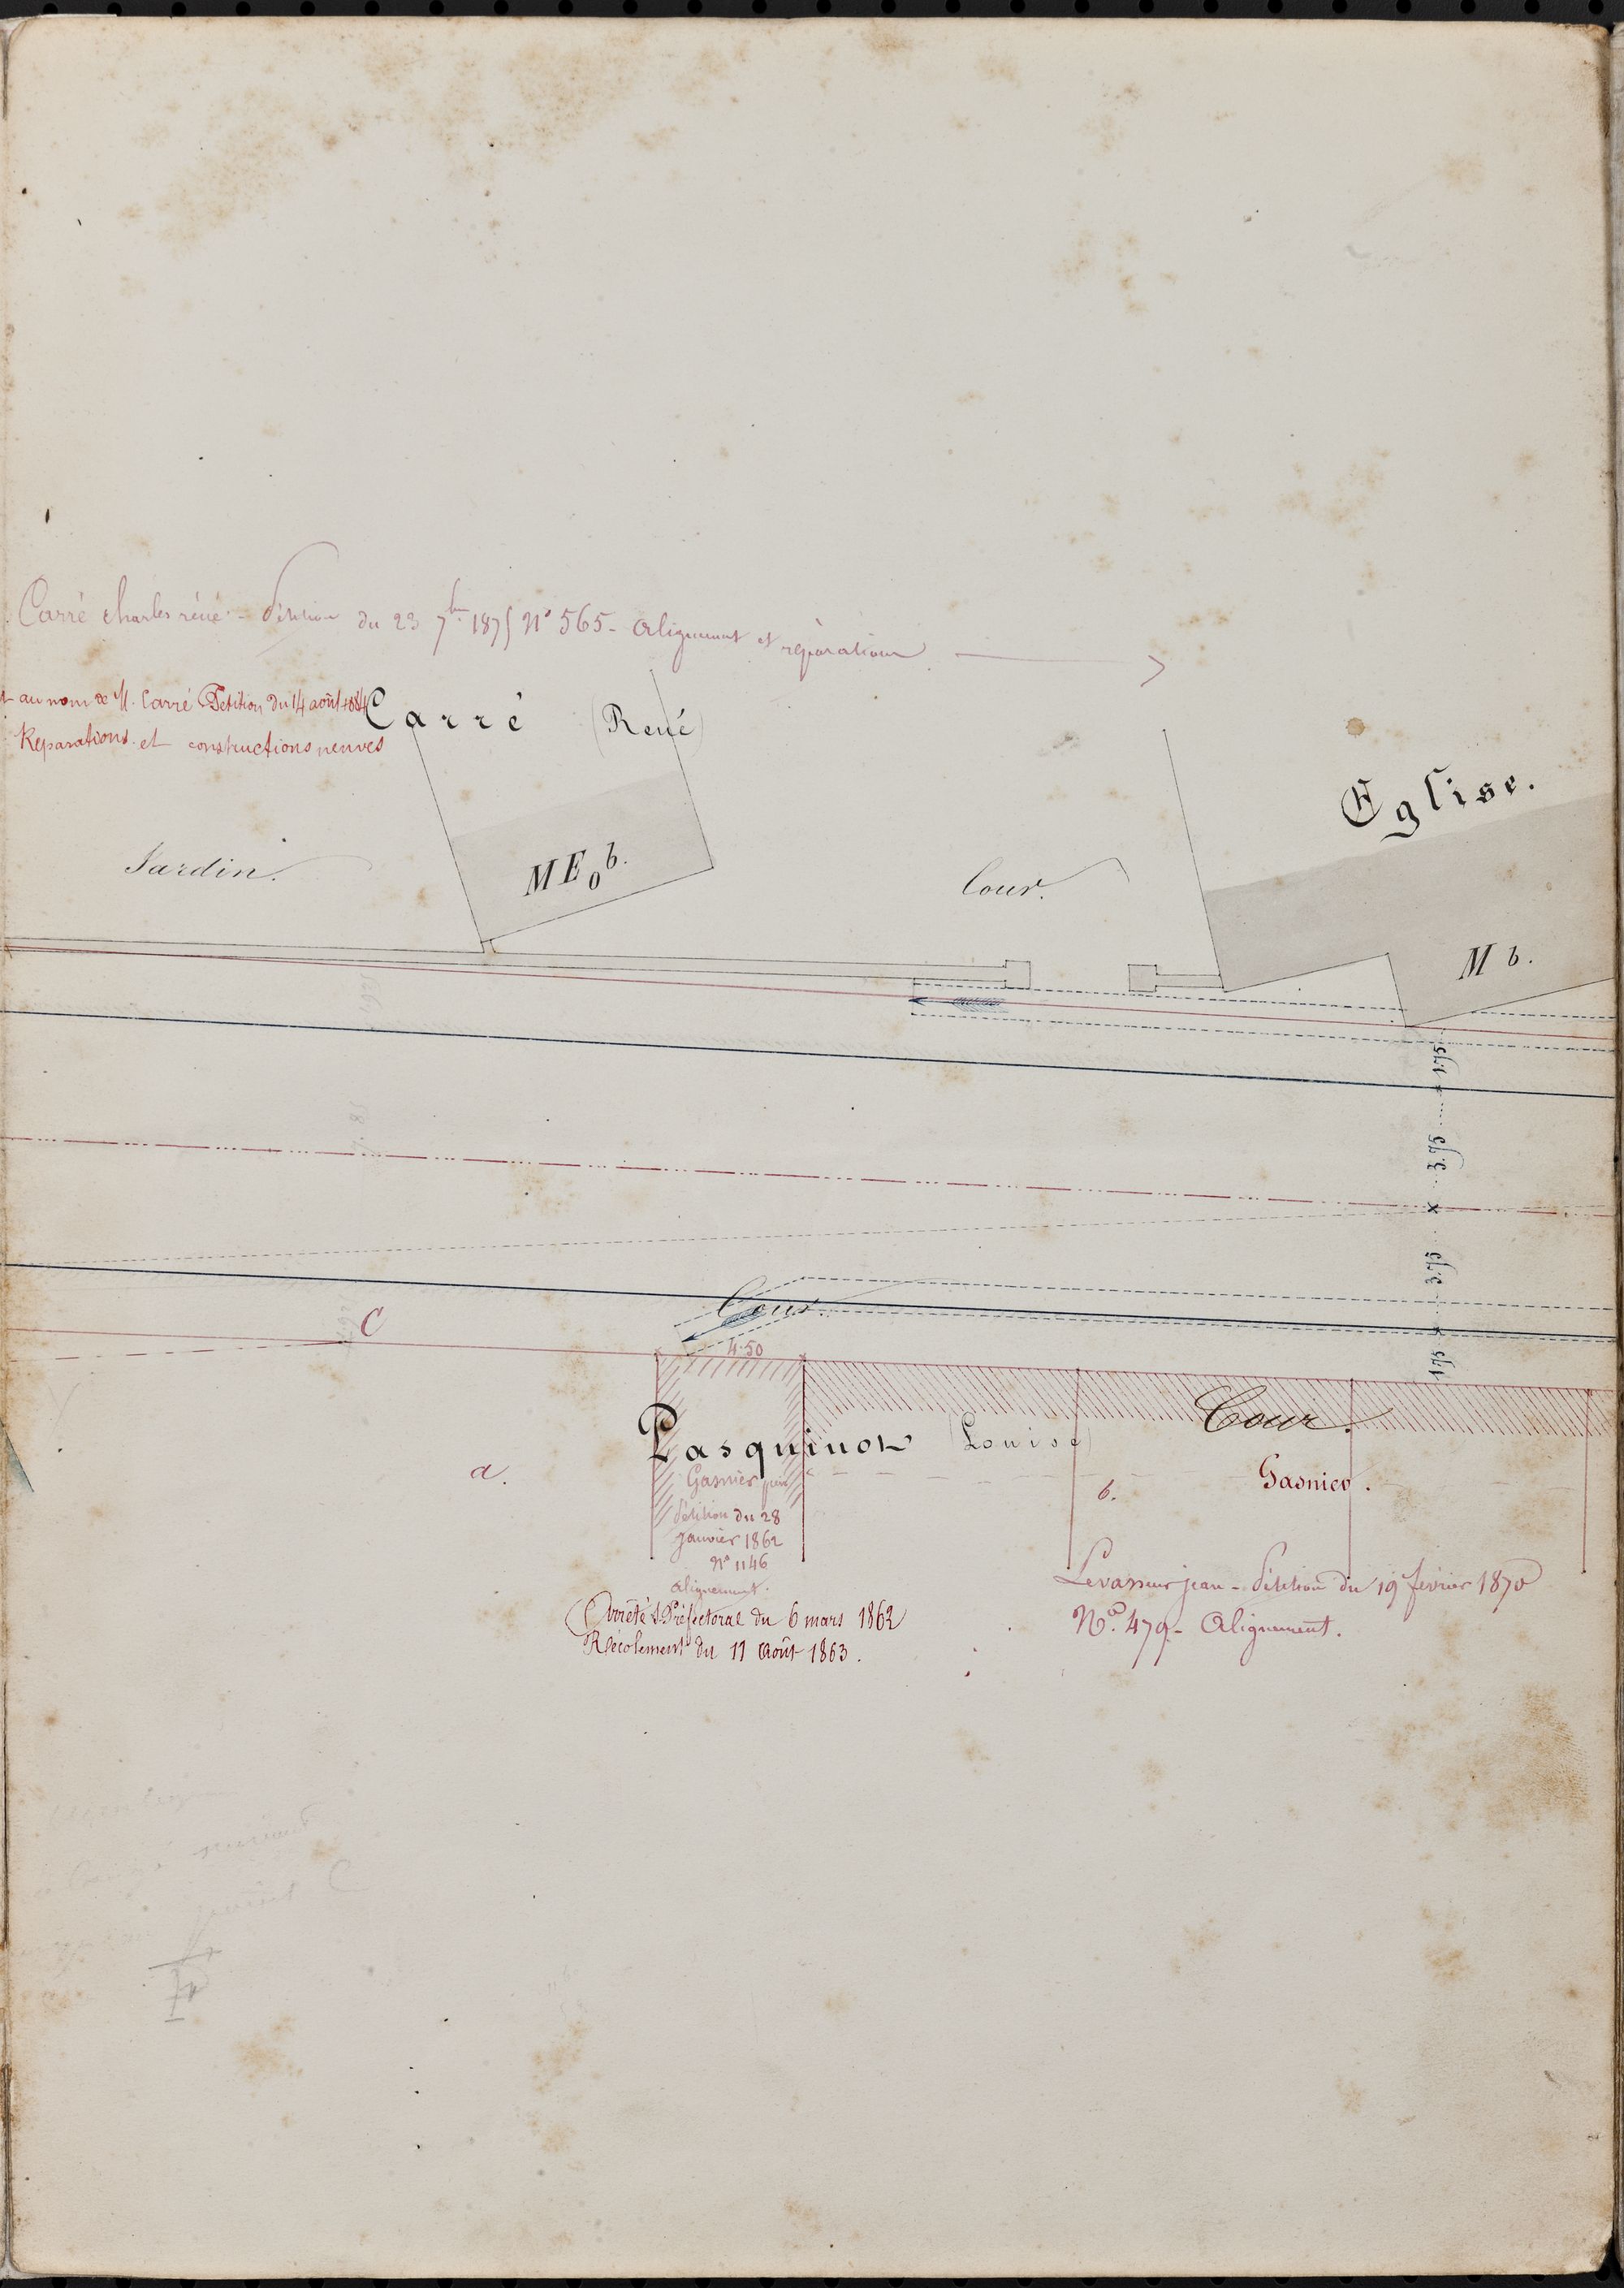 Carré Charles réné - Pétition du 23 7bre 1875 N° 565 - Alignement et réparations
au nom de M. Carré Pétition du 14 août 1884
Réparations et constructions neuves
Carré (René)
Eglise.
Jardin.
ME0b.
Cour.
M b.
1.75
3.75
3.75
1.75
Cour.
C
4.50
Cour.
Pasquinot (Louise)
a.
Gasnier
b.
Gasnier.
Pétition du 28
Janvier 1862
N° 1146
Alignement.
Arrêté Préfectoral du 6 mars 1862
Récolement du 11 Août 1863.
Levasseur jean - Pétition du 19 février 1870
N° 479 - Alignement.
point C